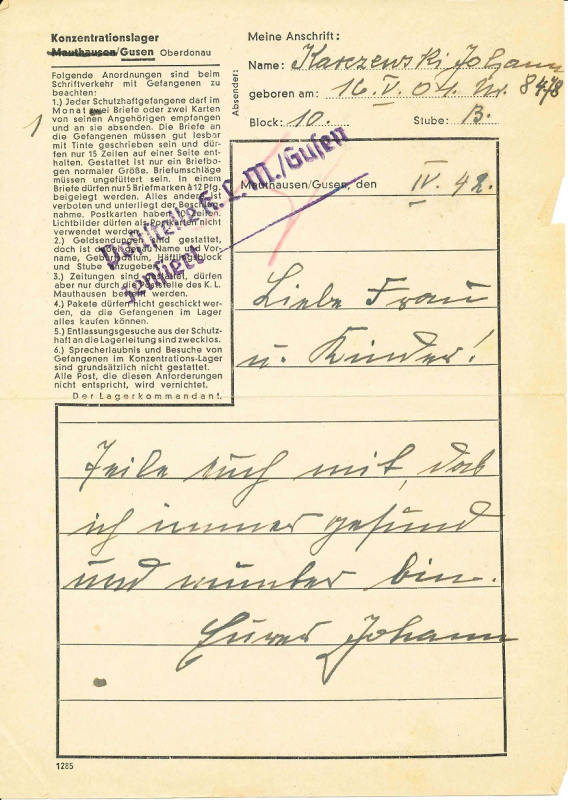 Konzentrationslager
Mauthausen/Gusen Oberdonau
Folgende Anordnungen sind beim
Schriftverkehr mit Gefangenen zu
beachten:
1.) Jeder Schutzhaftgefangene darf im
Monat zwei Briefe oder zwei Karten
von seinen Angehörigen empfangen
und an sie absenden. Die Briefe an
die Gefangenen müssen gut lesbar
mit Tinte geschrieben sein und dür-
fen nur 15 Zeilen auf einer Seite ent-
halten. Gestattet ist nur ein Briefbo-
gen normaler Größe. Briefumschläge
müssen ungefüttert sein. In einem
Briefe dürfen nur 5 Briefmarken à 12 Pfg.
beigelegt werden. Alles andere ist
verboten und unterliegt der Beschlag-
nahme. Postkarten haben 10 Zeilen.
Lichtbilder dürfen als Postkarten nicht
verwendet werden.
2.) Geldsendungen sind gestattet,
doch ist dabei genau Name und Vor-
name, Geb.-Datum, Häftlingsblock
und Stube anzugeben.
3.) Zeitungen sind gestattet, dürfen
aber nur durch die Poststelle des K. L.
Mauthausen bestellt werden.
4.) Pakete dürfen nicht geschickt wer-
den, da die Gefangenen im Lager
alles kaufen können.
5.) Entlassungsgesuche aus der Schutz-
haft an die Lagerleitung sind zwecklos.
6.) Sprecherlaubnis und Besuche von
Gefangenen im Konzentrations-Lager
sind grundsätzlich nicht gestattet.
Alle Post, die diesen Anforderungen
nicht entspricht, wird vernichtet.
Der Lagerkommandant.
1
Absender:
Meine Anschrift:
Name: Karczewski Johann
geboren am: 16. V. 04. Nr. 8478
Block: 10. Stube: B.
Poststelle K. L. M./Gusen
zensiert
Mauthausen/Gusen, den IV. 42.
Liebe Frau
u. Kinder!
Teile euch mit, daß
ich immer gesund
und munter bin.
Euer Johann
1285